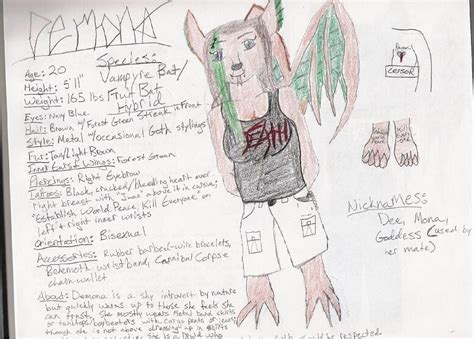 DEMONA
Species:
Vampyre Bat/
Fruit Bat
Hybrid
Age: 20
Height: 5'11"
Weight: 165 lbs
Eyes: Navy Blue
Hair: Brown w/ Forest Green Streak in Front
Style: Metal w/occasional Goth stylings
Fur: Tan/Light Brown
Inner Ears & Wings: Forest Green
Piercings: Right Eyebrow
Tattoos: Black, cracked/bleeding heart over
right breast with "Juan" above it in cursive;
"Establish World Peace Kill Everyone" on
left & right inner wrists
Orientation: Bisexual
Accessories: Rubber barbed-wire bracelets,
Behemoth wristband, Cannibal Corpse
chain wallet
About: Demona is a shy introvert by nature
but quickly warms up to those she feels she
can trust. She mostly wears Metal band shirts
or tanktops/
w/ cargo pants or jeans;
though she is not above dressing up in skirts
would be respected.
DEATH
CENSOR
Nicknames:
Dee, Mona,
Goddess (used by
her mate)